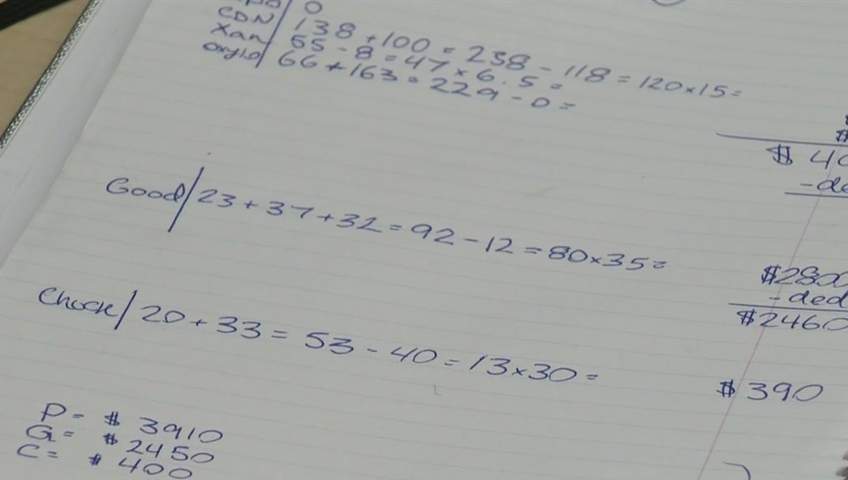 0
CDN/ 138+100=238-118=120x15=
Xan/ 55-8=47x6.5=
66+163=229-0=
$ 40
Good/23+37+32=92-12=80x35= $2800
-ded
$2460
Chuck/20+33=53-40=13x30= $390
P= $ 3910
G= $ 2450
C= $ 400